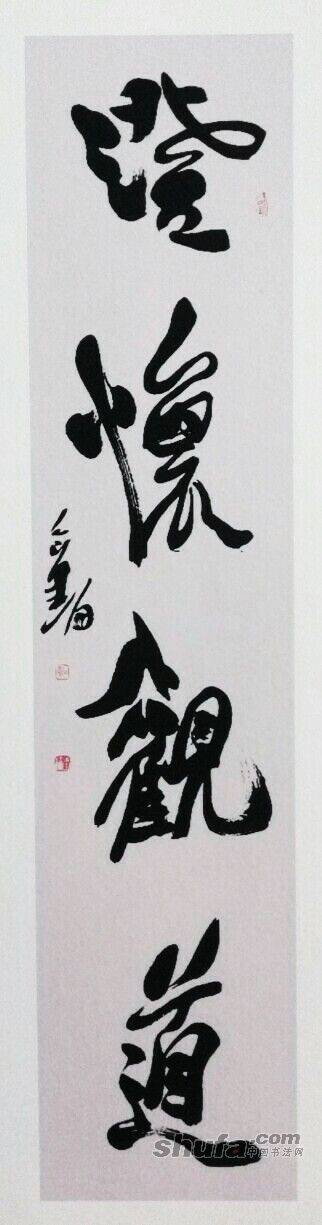 澄懷觀道
shufa.com
中国书法网